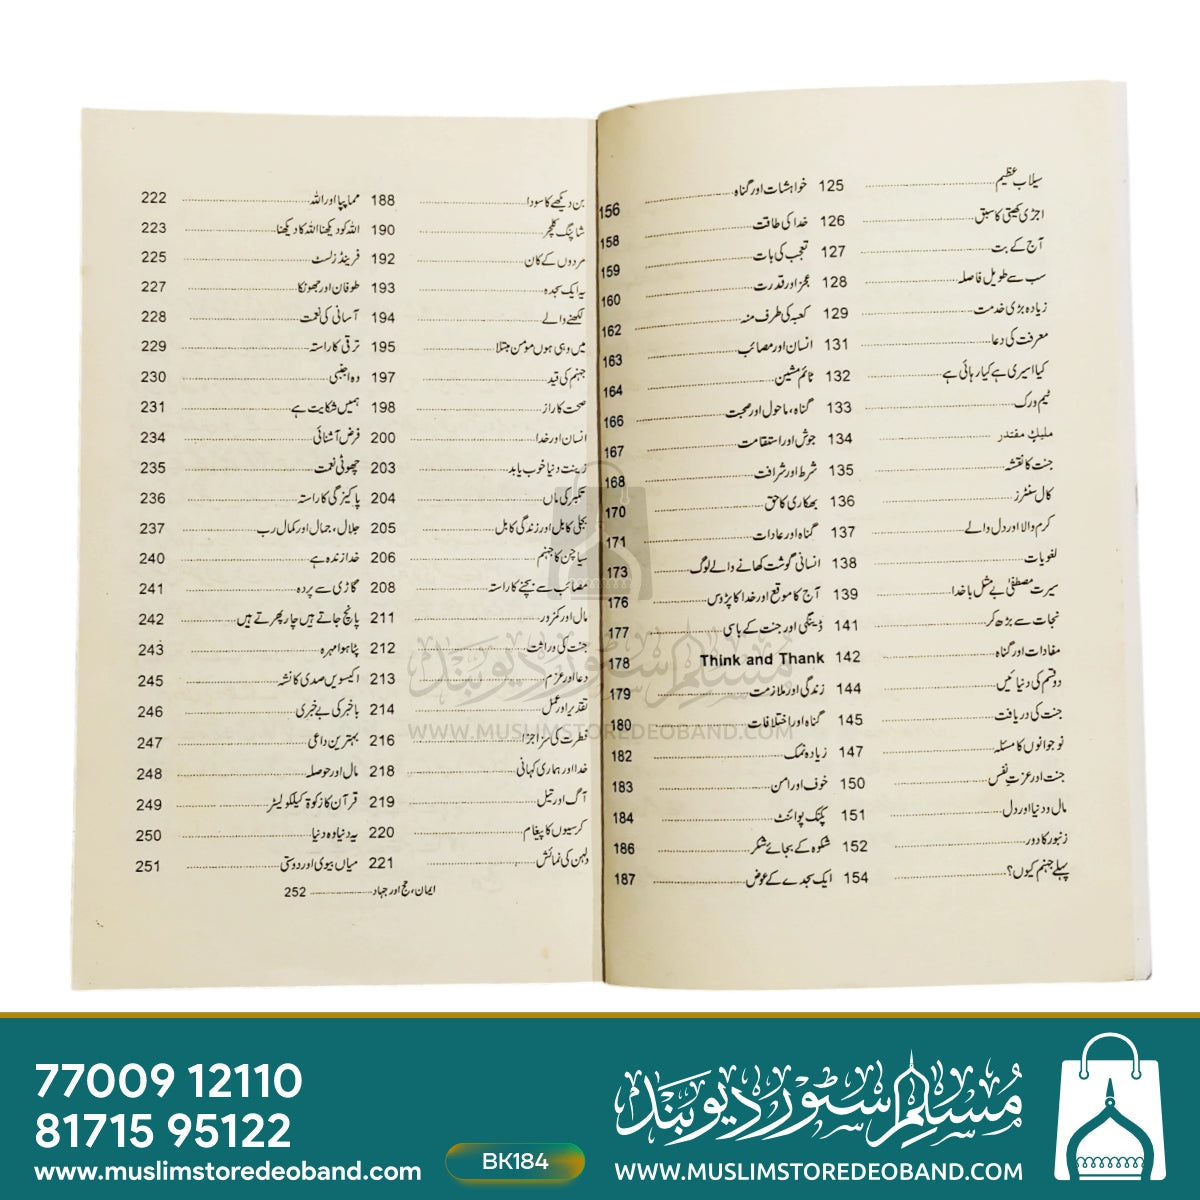 سیلاب عظیم 125 خواہشات اور گناہ 156
اجڑی کھیتی کا سبق 126 خدا کی طاقت 158
آج کے بت 127 تعجب کی بات 159
سب سے طویل فاصلہ 128 عجز اور قدرت 160
زیادہ بڑی خدمت 129 کعبہ کی طرف منہ 162
معرفت کی دعا 131 انسان اور مصائب 163
کیا اسیری ہے کیا رہائی ہے 132 ٹائم مشین 164
ٹیم ورک 133 گناہ، ماحول اور صحبت 166
ملیکٍ مقتدر 134 جوش اور استقامت 167
جنت کا نقشہ 135 شرط اور شرافت 168
کال سنٹرز 136 بھکاری کا حق 170
کرم والا اور دل والے 137 گناہ اور عادات 171
لغویات 138 انسانی گوشت کھانے والے لوگ 173
سیرت مصطفیٰ بے مثل باخدا 139 آج کا موقع اور خدا کا پڑوس 176
نجات سے بڑھ کر 141 ڈینگی اور جنت کے باسی 177
مفادات اور گناہ 142 Think and Thank 178
دو قسم کی دنیائیں 144 زندگی اور ملازمت 179
جنت کی دریافت 145 گناہ اور اختلافات 180
نوجوانوں کا مسئلہ 147 زیادہ نمک 182
جنت اور عزتِ نفس 150 خوف اور امن 183
مال و دنیا اور دل 151 پکنک پوائنٹ 184
زنبور کا دور 152 شکوہ کے بجائے شکر 186
پہلے جہنم کیوں؟ 154 ایک سجدے کے عوض 187
بن دیکھے کا سودا 188 مما پپا اور اللہ 222
شاپنگ کلچر 190 اللہ کو دیکھنا اللہ کا دیکھنا 223
مردوں کے کان 192 فرینڈز لسٹ 225
یہ ایک سجدہ 193 طوفان اور جھونکا 227
لکھنے والے 194 آسانی کی نعمت 228
میں وہی ہوں مومن مبتلا 195 ترقی کا راستہ 229
جہنم کی قید 197 وہ اجنبی 230
صحت کا راز 198 ہمیں شکایت ہے 231
انسان اور خدا 200 فرض آشنائی 234
زینت دنیا خوب یا بد 203 چھوٹی نعمت 235
تکبر کی ماں 204 پاکیزگی کا راستہ 236
بجلی کا بل اور زندگی کا بل 205 جلال، جمال اور کمال رب 237
سیاچن کا جہنم 206 خدا زندہ ہے 240
مصائب سے بچنے کا راستہ 208 گاڑی سے پردہ 241
مال اور کمزور 211 پانچ جاتے ہیں چار پھرتے ہیں 242
جنت کی وراثت 212 پٹا ہوا مہرہ 243
دعا اور عزم 213 اکیسویں صدی کا نشہ 245
تقدیر اور عمل 214 باخبر کی بے خبری 246
فطرت کی سزا جزا 216 بہترین داعی 247
خدا اور ہماری کہانی 218 مال اور حوصلہ 248
آگ اور تیل 219 قرآن کا زکوۃ کیلکولیٹر 249
کرسیوں کا پیغام 220 یہ دنیا وہ دنیا 250
دلہن کی نمائش 221 میاں بیوی اور دوستی 251
ایمان، حج اور جہاد 252
مسلم سٹور دیوبند
WWW.MUSLIMSTOREDEOBAND.COM
77009 12110
81715 95122
www.muslimstoredeoband.com
BK184
مسلم سٹور دیوبند
WWW.MUSLIMSTOREDEOBAND.COM